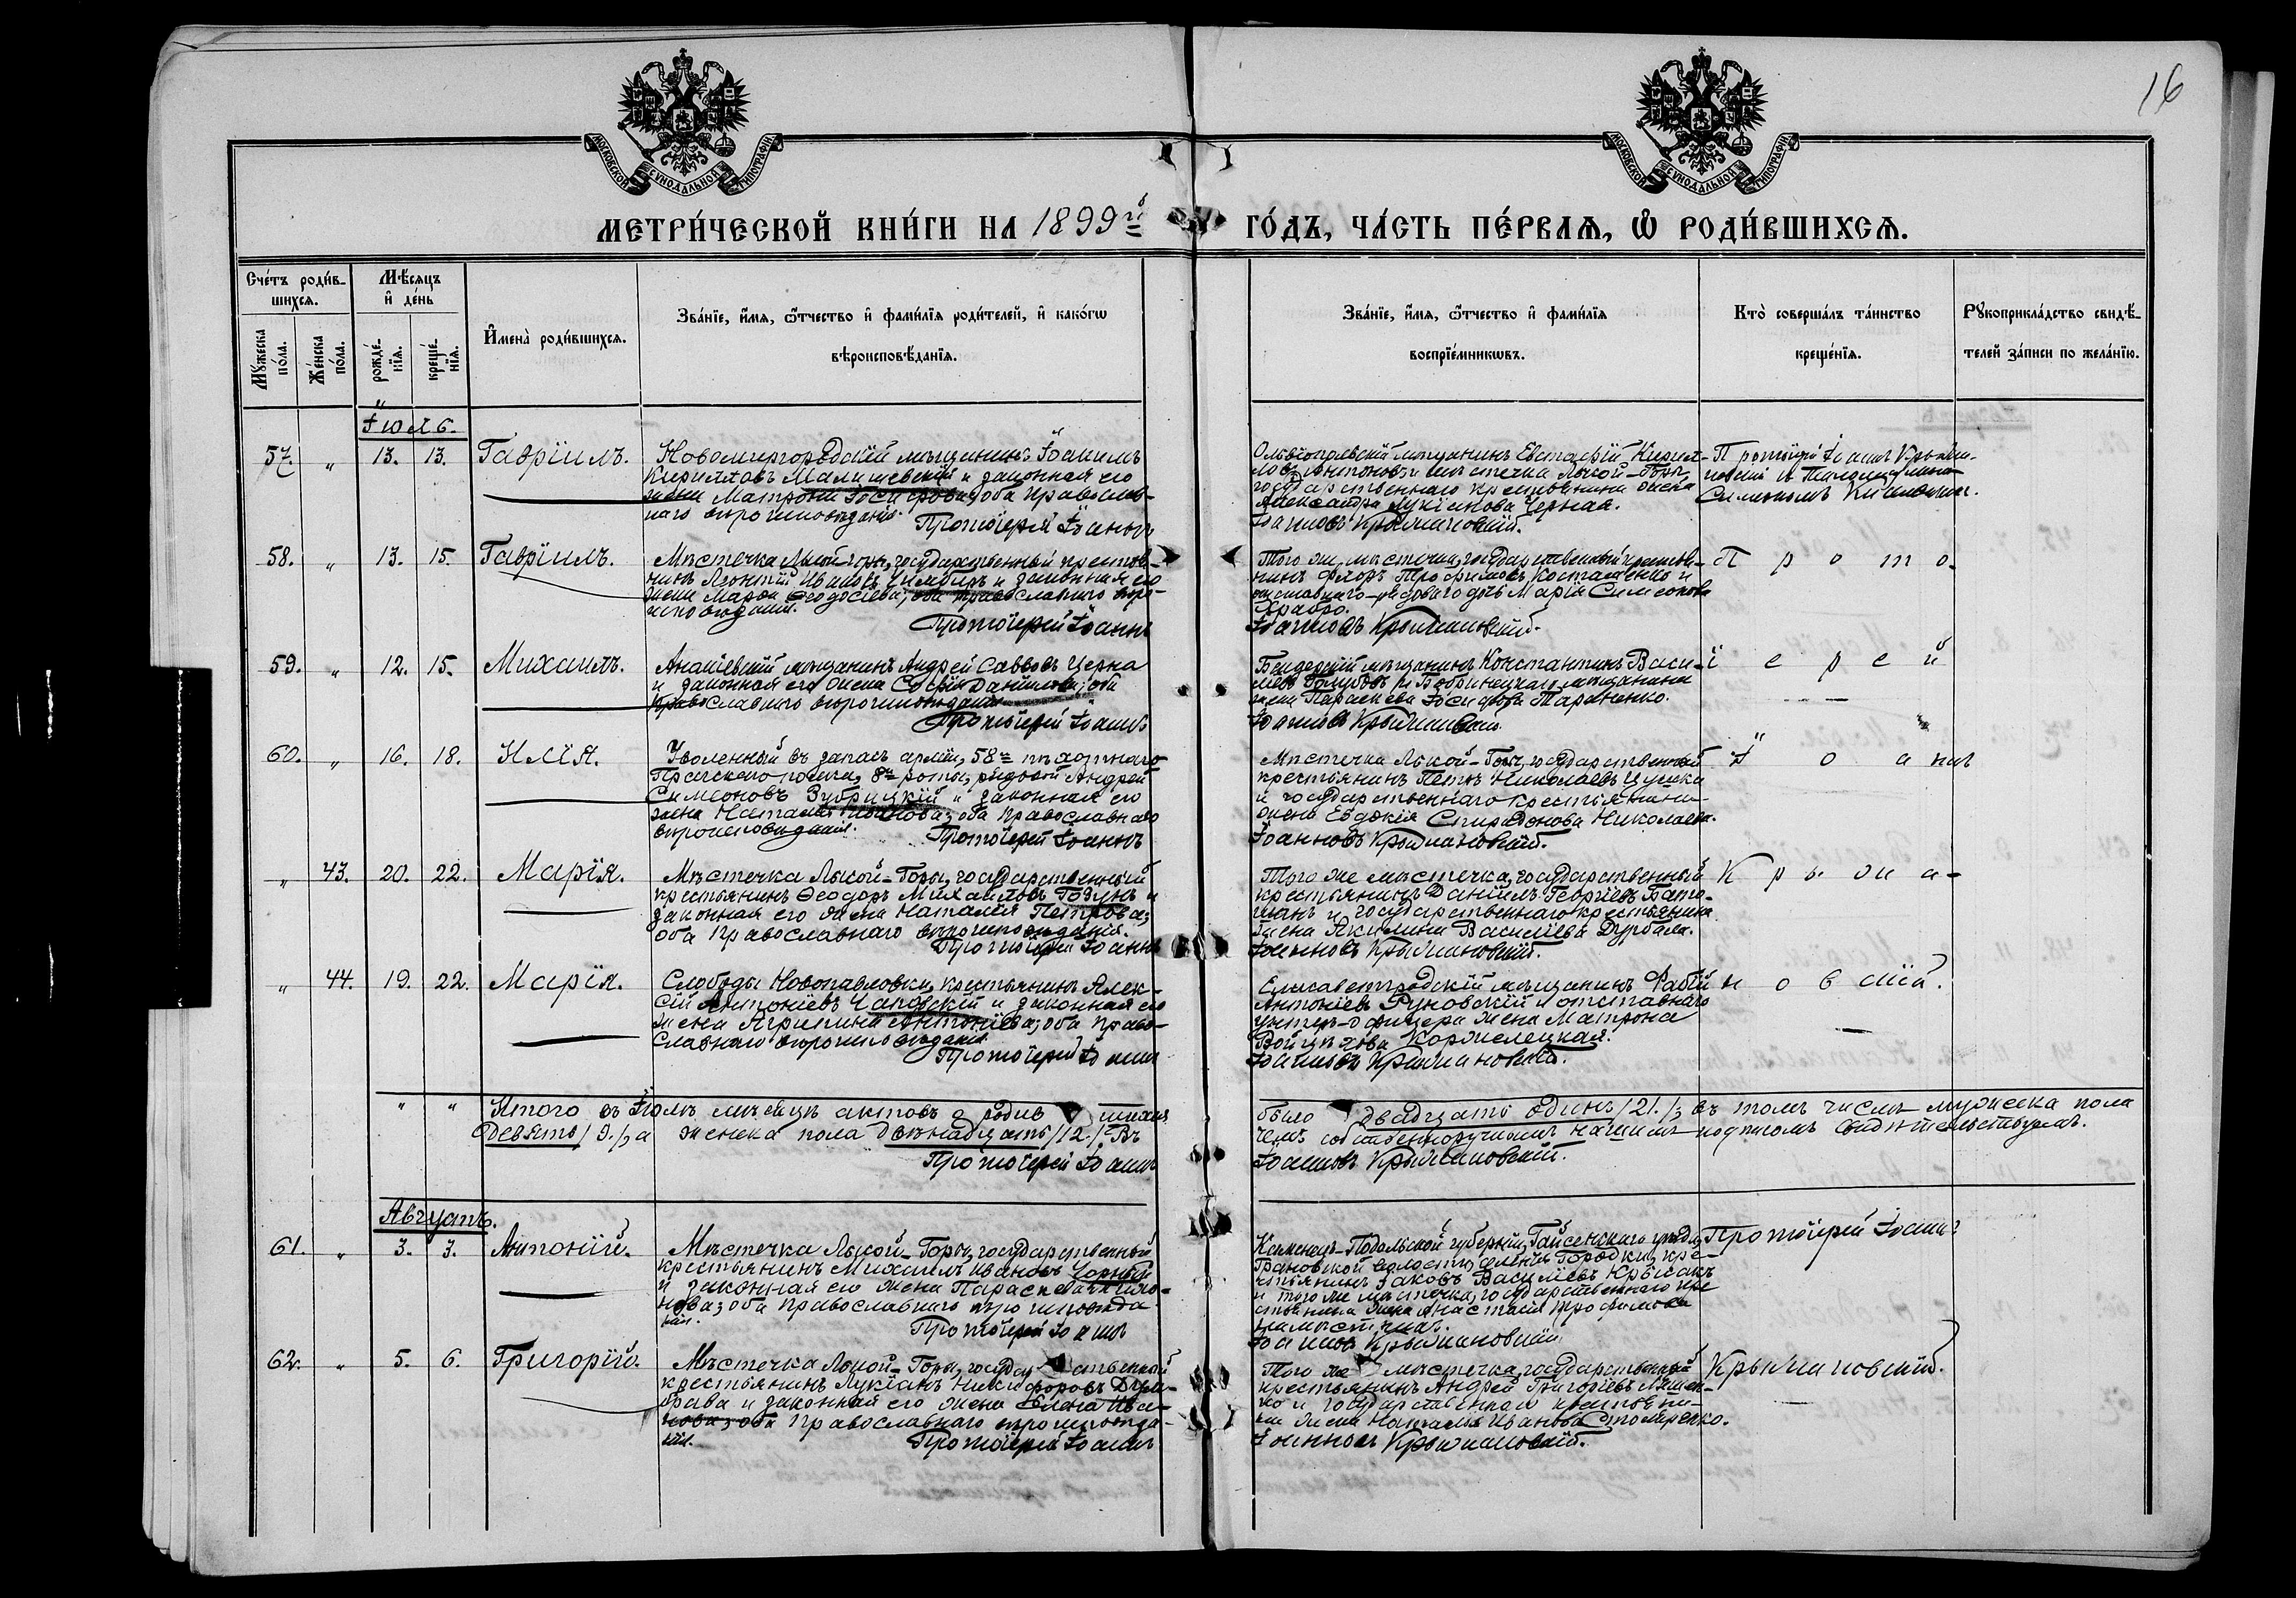 16
МОСКОВСКОЙ СѴНОДАЛЬНОЙ ТИПОГРАФІИ
МОСКОВСКОЙ СѴНОДАЛЬНОЙ ТИПОГРАФІИ
МЕТРИ́ЧЕСКОЙ КНИ́ГИ НА 1899й ГО́ДЪ, ЧА́СТЬ ПЕ́РВАѦ, Ѡ҆ РОДИ́ВШИХСѦ.
Сче́тъ роди́в-
шихсѧ.
Мꙋжеска по́ла.
Же́нска по́ла.
Мѣ́сѧцъ
и҆ де́нь
рожде́-
нїѧ.
креще́-
нїѧ.
И҆мена̀ роди́вшихсѧ.
Зва́нїе, и҆́мѧ, ѻ҆́тчество и҆ фами́лїѧ роди́телей, и҆ како́гѡ
вѣроисповѣ́данїѧ.
Зва́нїе, и҆́мѧ, ѻ҆́тчество и҆ фами́лїѧ
воспрїе́мникѡвъ.
Кто̀ соверша́лъ та́инство
креще́нїѧ.
Рꙋкоприкла́дство свидѣ́-
телей за́писи по жела́нїю.
Іюль.
57. " 13. 13. Гавріилъ.
Новомиргородскій мѣщанинъ Іоакимъ
Кирилловъ Малишевскій и законная его
жена Матрона Іосифова; оба Православ-
наго вѣроисповѣданія.
Протоіерей Іоаннъ
Ольвіопольскій мѣщанинъ Евстафій Кирил-
ловъ Антоновъ и мѣстечка Лысой-Горы,
государственнаго крестьянина жена
Александра Лукіанова Черная.
Іоанновъ Крыжановскій.
Протоіерей Іоаннъ Крыжа-
новскій съ
Симеономъ
58. " 13. 15. Гавріилъ.
Мѣстечка Лысой-Горы, государственный крестья-
нинъ Леонтій Ивановъ Цимбаръ и законная его
жена Марѳа Ѳеодосіева; оба православнаго вѣро-
исповѣданія.
Протоіерей Іоаннъ
Того же мѣстечка, государственный крестья-
нинъ Флоръ Трофимовъ Костаменко и
отставнаго рядоваго дочь Марія Симеонова
Храбро.
Іоанновъ Крыжановскій.
П р о т о-
59. " 12. 15. Михаилъ.
Ананіевскій мѣщанинъ Андрей Саввовъ Черна
и законная его жена Софія Даніилова; оба
православнаго вѣроисповѣданія
Протоіерей Іоаннъ
Бендерскій мѣщанинъ Константинъ Васи-
лѣевъ Голубовъ и Бобринецкаго мѣщанина
жена Параскева Іосифова Тараненко.
Іоанновъ Крыжановскій.
і е р е й
60. " 16. 18. Илія.
Уволенный въ запасъ арміи, 58го пѣхотнаго
Прагскаго полка, 8й роты, рядовой Андрей
Симеоновъ Зубрицкій и законная его
жена Наталія Иванова; оба православнаго
вѣроисповѣданія.
Протоіерей Іоаннъ
Мѣстечка Лысой-Горы, государственный
крестьянинъ Петръ Николаевъ Цушка
и государственнаго крестьянина
жена Евдокія Спиридонова Николаева.
Іоанновъ Крыжановскій.
І о а ннъ
" 43. 20. 22. Марія.
Мѣстечка Лысой-Горы, государственный
крестьянинъ Ѳеодоръ Михаиловъ Годунъ и
законная его жена Наталія Петрова;
оба Православнаго вѣроисповѣданія.
Протоіерей Іоаннъ
Того же мѣстечка, государственный
крестьянинъ Даніилъ Георгіевъ Бато-
жанъ и государственнаго крестьянина
жена Акилина Василіева Дурбала.
Іоанновъ Крыжановскій.
К р ы ж а-
" 44. 19. 22. Марія.
Слободы Новопавловки, крестьянинъ Алек-
сій Антоніевъ Чаповскій и законная его
жена Агрипина Антоніева; оба право-
славнаго вѣроисповѣданія.
Протоіерей Іоаннъ
Елисаветградскій мѣщанинъ Фабій
Антоніевъ Руновскій и отставнаго
унтеръ-офицера жена Матрона
Войцѣхова Коржелецкая.
Іоанновъ Крыжановскій.
н о в скій.
" " Итого въ Іюлѣ мѣсяцѣ актовъ о родив шихся было двадцать одинъ /21./, въ томъ числѣ мужеска пола
Девять /9./, а женска пола двѣнадцать /12./. Въ чемъ собственноручнымъ нашимъ подписомъ свидѣтельствуемъ.
Протоіерей Іоаннъ Іоанновъ Крыжановскій.
Августъ.
61. " 3. 3. Антоній.
Мѣстечка Лысой-Горы, государственный
крестьянинъ Михаилъ Ивановъ Чорный
и законная его жена Параскева
нова; оба православнаго вѣроисповѣда-
нія.
Протоіерей Іоаннъ
Каменецъ-Подольской губерніи, Гайсинскаго уѣзда,
Грановской волости, деревни Городки, кре-
стьянинъ Іаковъ Василіевъ Крысакъ
и того же мѣстечка, государственнаго кре
стьянина жена Анастасія Трофимова
Іоанновъ Крыжановскій.
Протоіерей Іоаннъ
62. " 5. 6. Григорій.
Мѣстечка Лысой-Горы, государственный
крестьянинъ Лукіанъ Никифоровъ Дум-
брава и законная его жена Елена Ива-
нова; оба Православнаго вѣроисповѣда-
нія.
Протоіерей Іоаннъ
Того же мѣстечка, государственный
крестьянинъ Андрей Григоріевъ Ляшен-
ко и государственнаго крестьяни-
на жена Наталія Иванова Столяренко.
Іоанновъ Крыжановскій.
Крыжановскій.